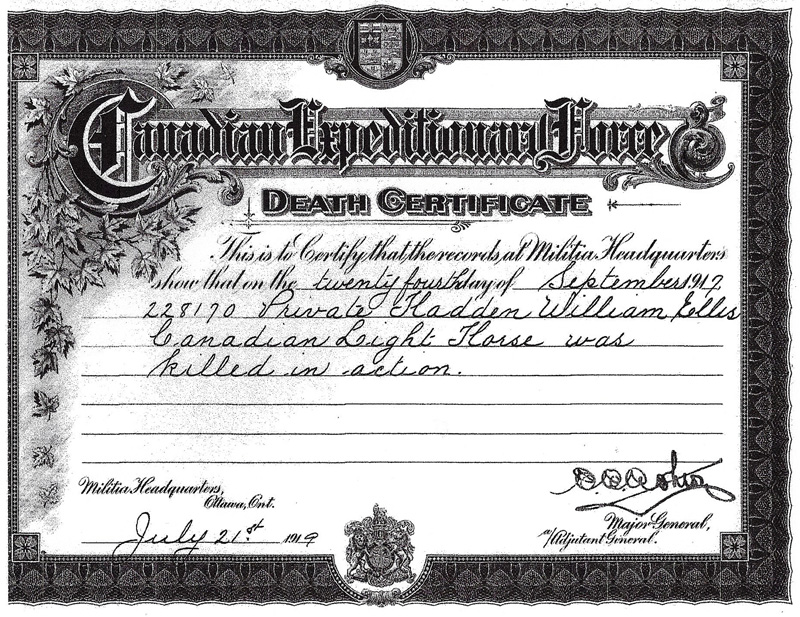 Canadian Expeditionary Force
DEATH CERTIFICATE
This is to Certify that the records at Militia Headquarters
show that on the twenty fourth day of September 1917
228170 Private Hadden William Ellis
Canadian Light Horse was
killed in action.
Militia Headquarters,
Ottawa, Ont.
July 21st 1919
Major-General,
Adjutant General.